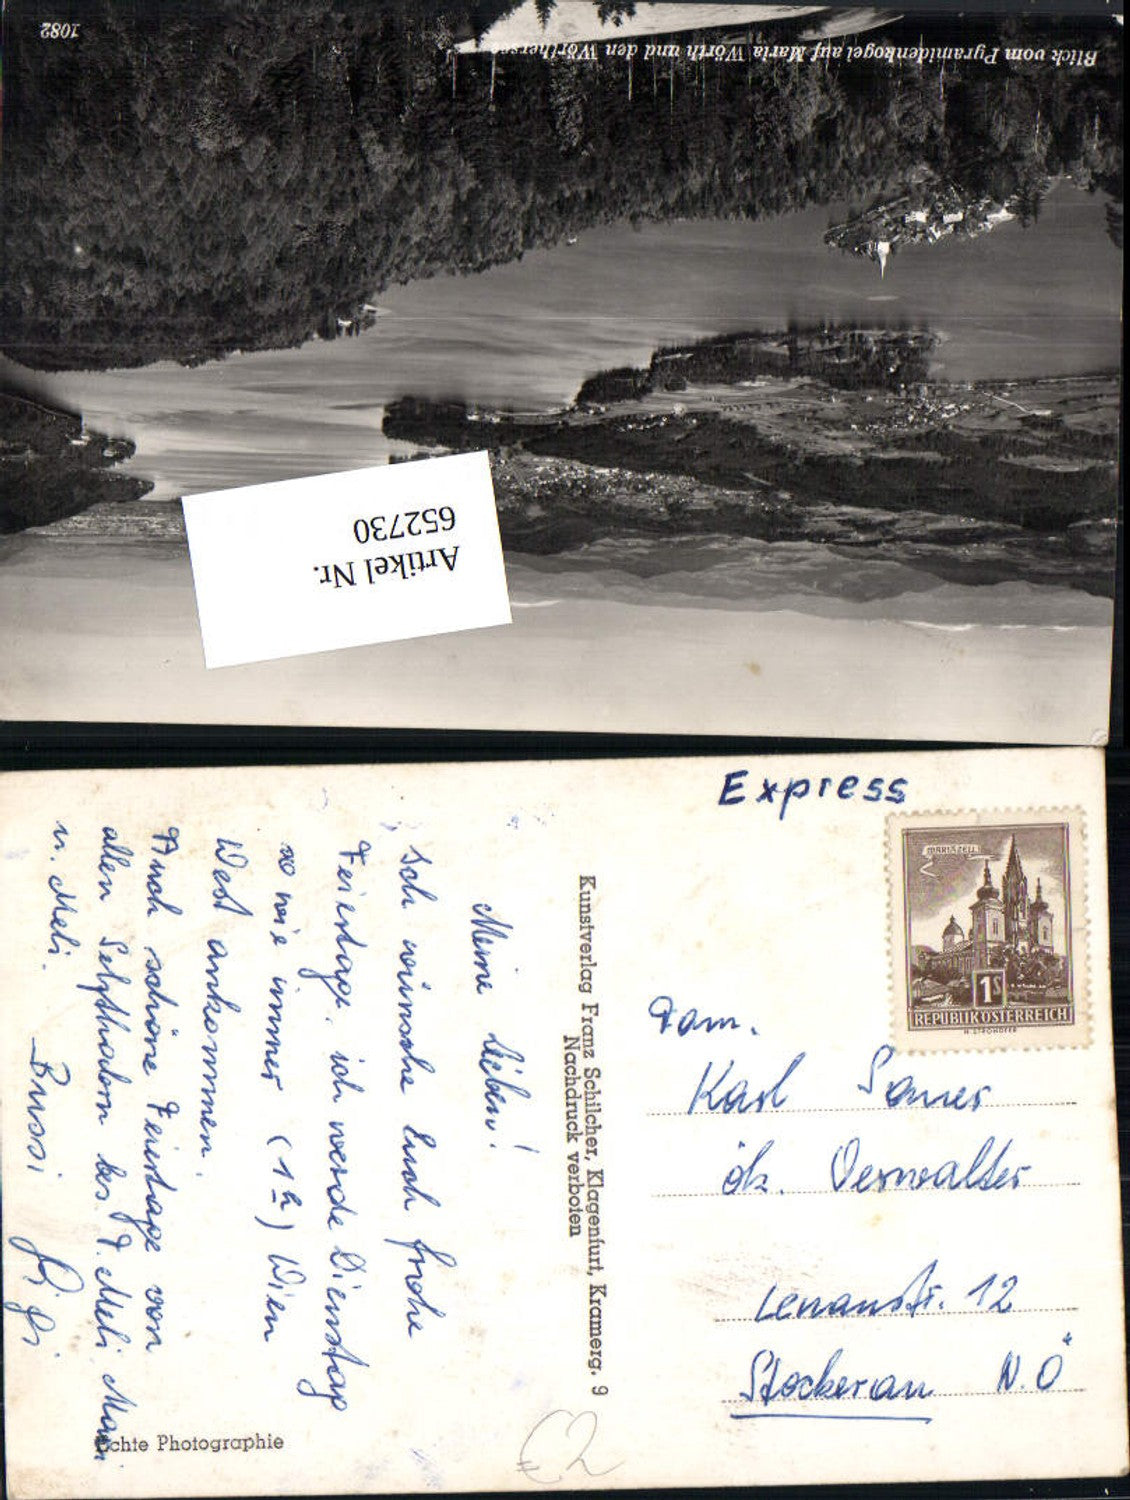 1082
Blick vom Pyramidenkogel auf Maria Wörth und den Wörthersee
Artikel Nr.
652730
Express
MARIAZELL
1S
REPUBLIK ÖSTERREICH
Fam.
Karl
ök. Verwalter
Lenaustr. 12
Stockerau N.Ö
Kunstverlag Franz Schilcher, Klagenfurt, Kramerg. 9
Nachdruck verboten
Meine Lieben!
Ich wünsche Euch frohe
Feiertage, ich werde Dienstag
so wie immer (1h) Wien
West ankommen.
Auch schöne Feiertage von
allen bes. F. Meli, Mami
u. Meli.
Bussi
Echte Photographie
€2